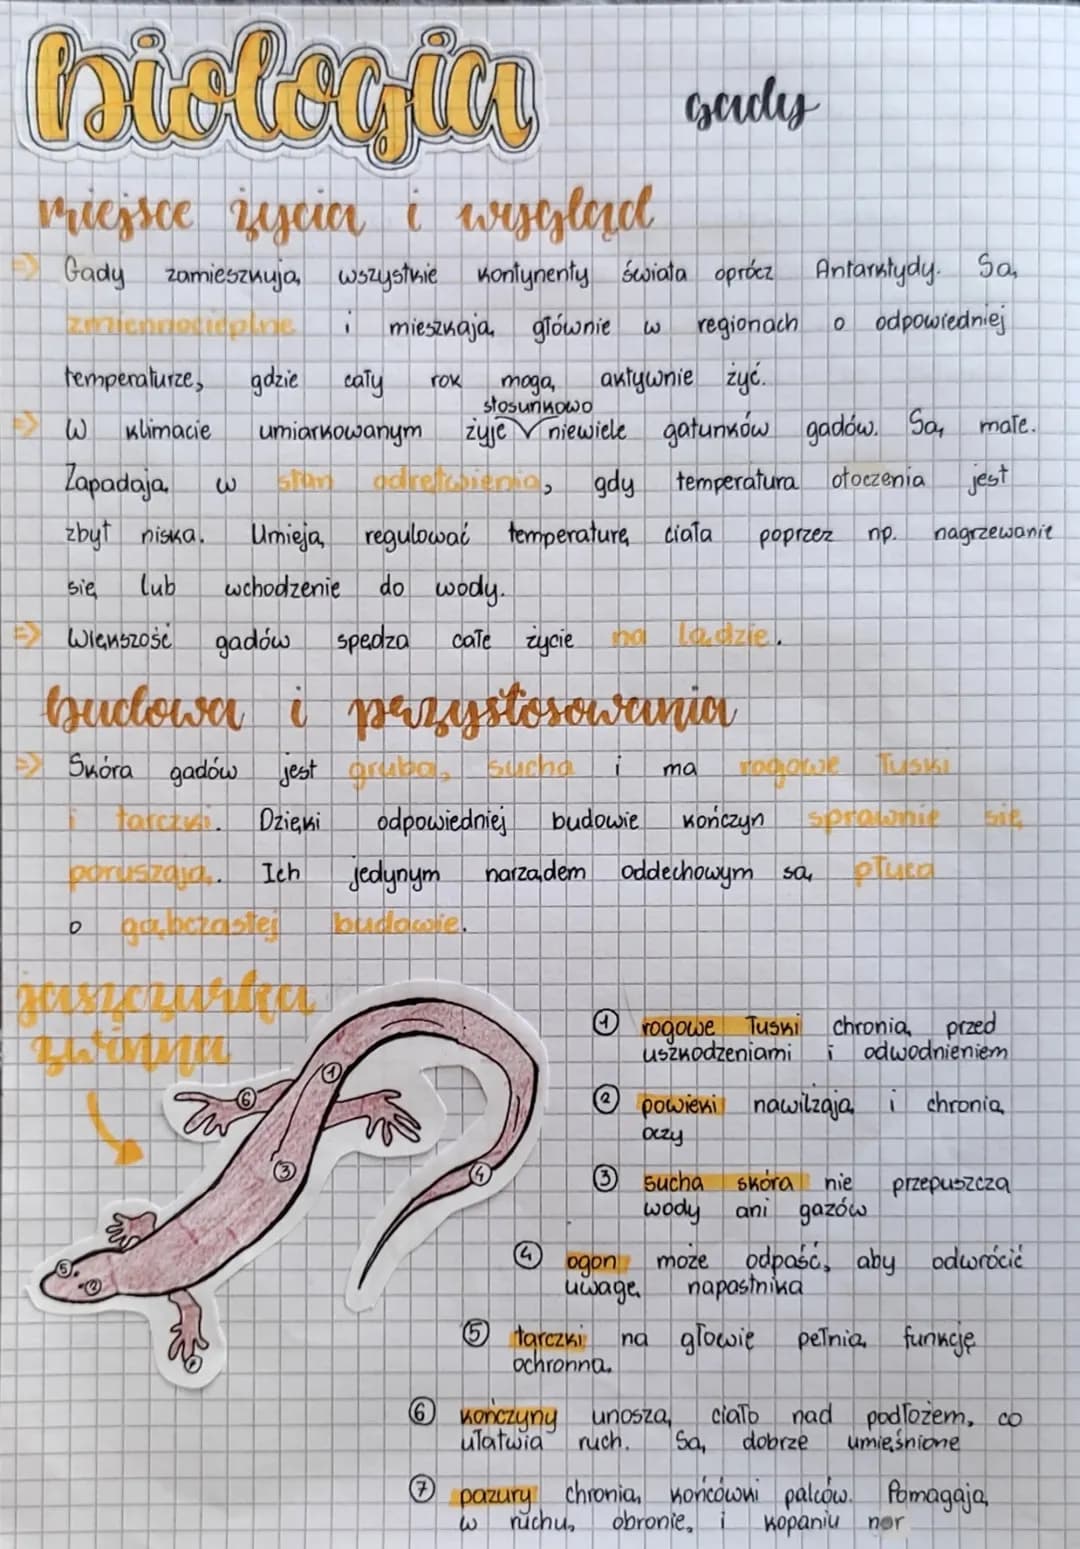 biologia
gady
miejsce życia i wygląd
=> Gady zamieszkują wszystkie kontynenty świata oprócz Antarktydy. Są
zmiennocieplne i mieszkają głównie w regionach o odpowiedniej
temperaturze, gdzie cały rok mogą aktywnie żyć.
stosunkowo
=> W klimacie umiarkowanym żyje niewiele gatunków gadów. Są małe.
Zapadają w stan odrętwienia, gdy temperatura otoczenia jest
zbyt niska. Umieją regulować temperaturę ciała poprzez np. nagrzewanie
się lub wchodzenie do wody.
=> Większość gadów spędza całe życie na lądzie.
budowa i przystosowania
=> Skóra gadów jest gruba, sucha i ma rogowe łuski
i tarczki. Dzięki odpowiedniej budowie kończyn sprawnie się
poruszają. Ich jedynym narządem oddechowym są płuca
o gąbczastej budowie.
jaszczurka
zwinna
1 rogowe łuski chronią przed
uszkodzeniami i odwodnieniem
2 powieki nawilżają i chronią
oczy
3 sucha skóra nie przepuszcza
wody ani gazów
4 ogon może odpaść, aby odwrócić
uwagę napastnika
5 tarczki na głowie pełnią funkcję
ochronną
6 kończyny unoszą ciało nad podłożem, co
ułatwia ruch. Są dobrze umięśnione
7 pazury chronią końcówki palców. Pomagają
w ruchu, obronie, i kopaniu nor
1
6
3
4
5
2
7